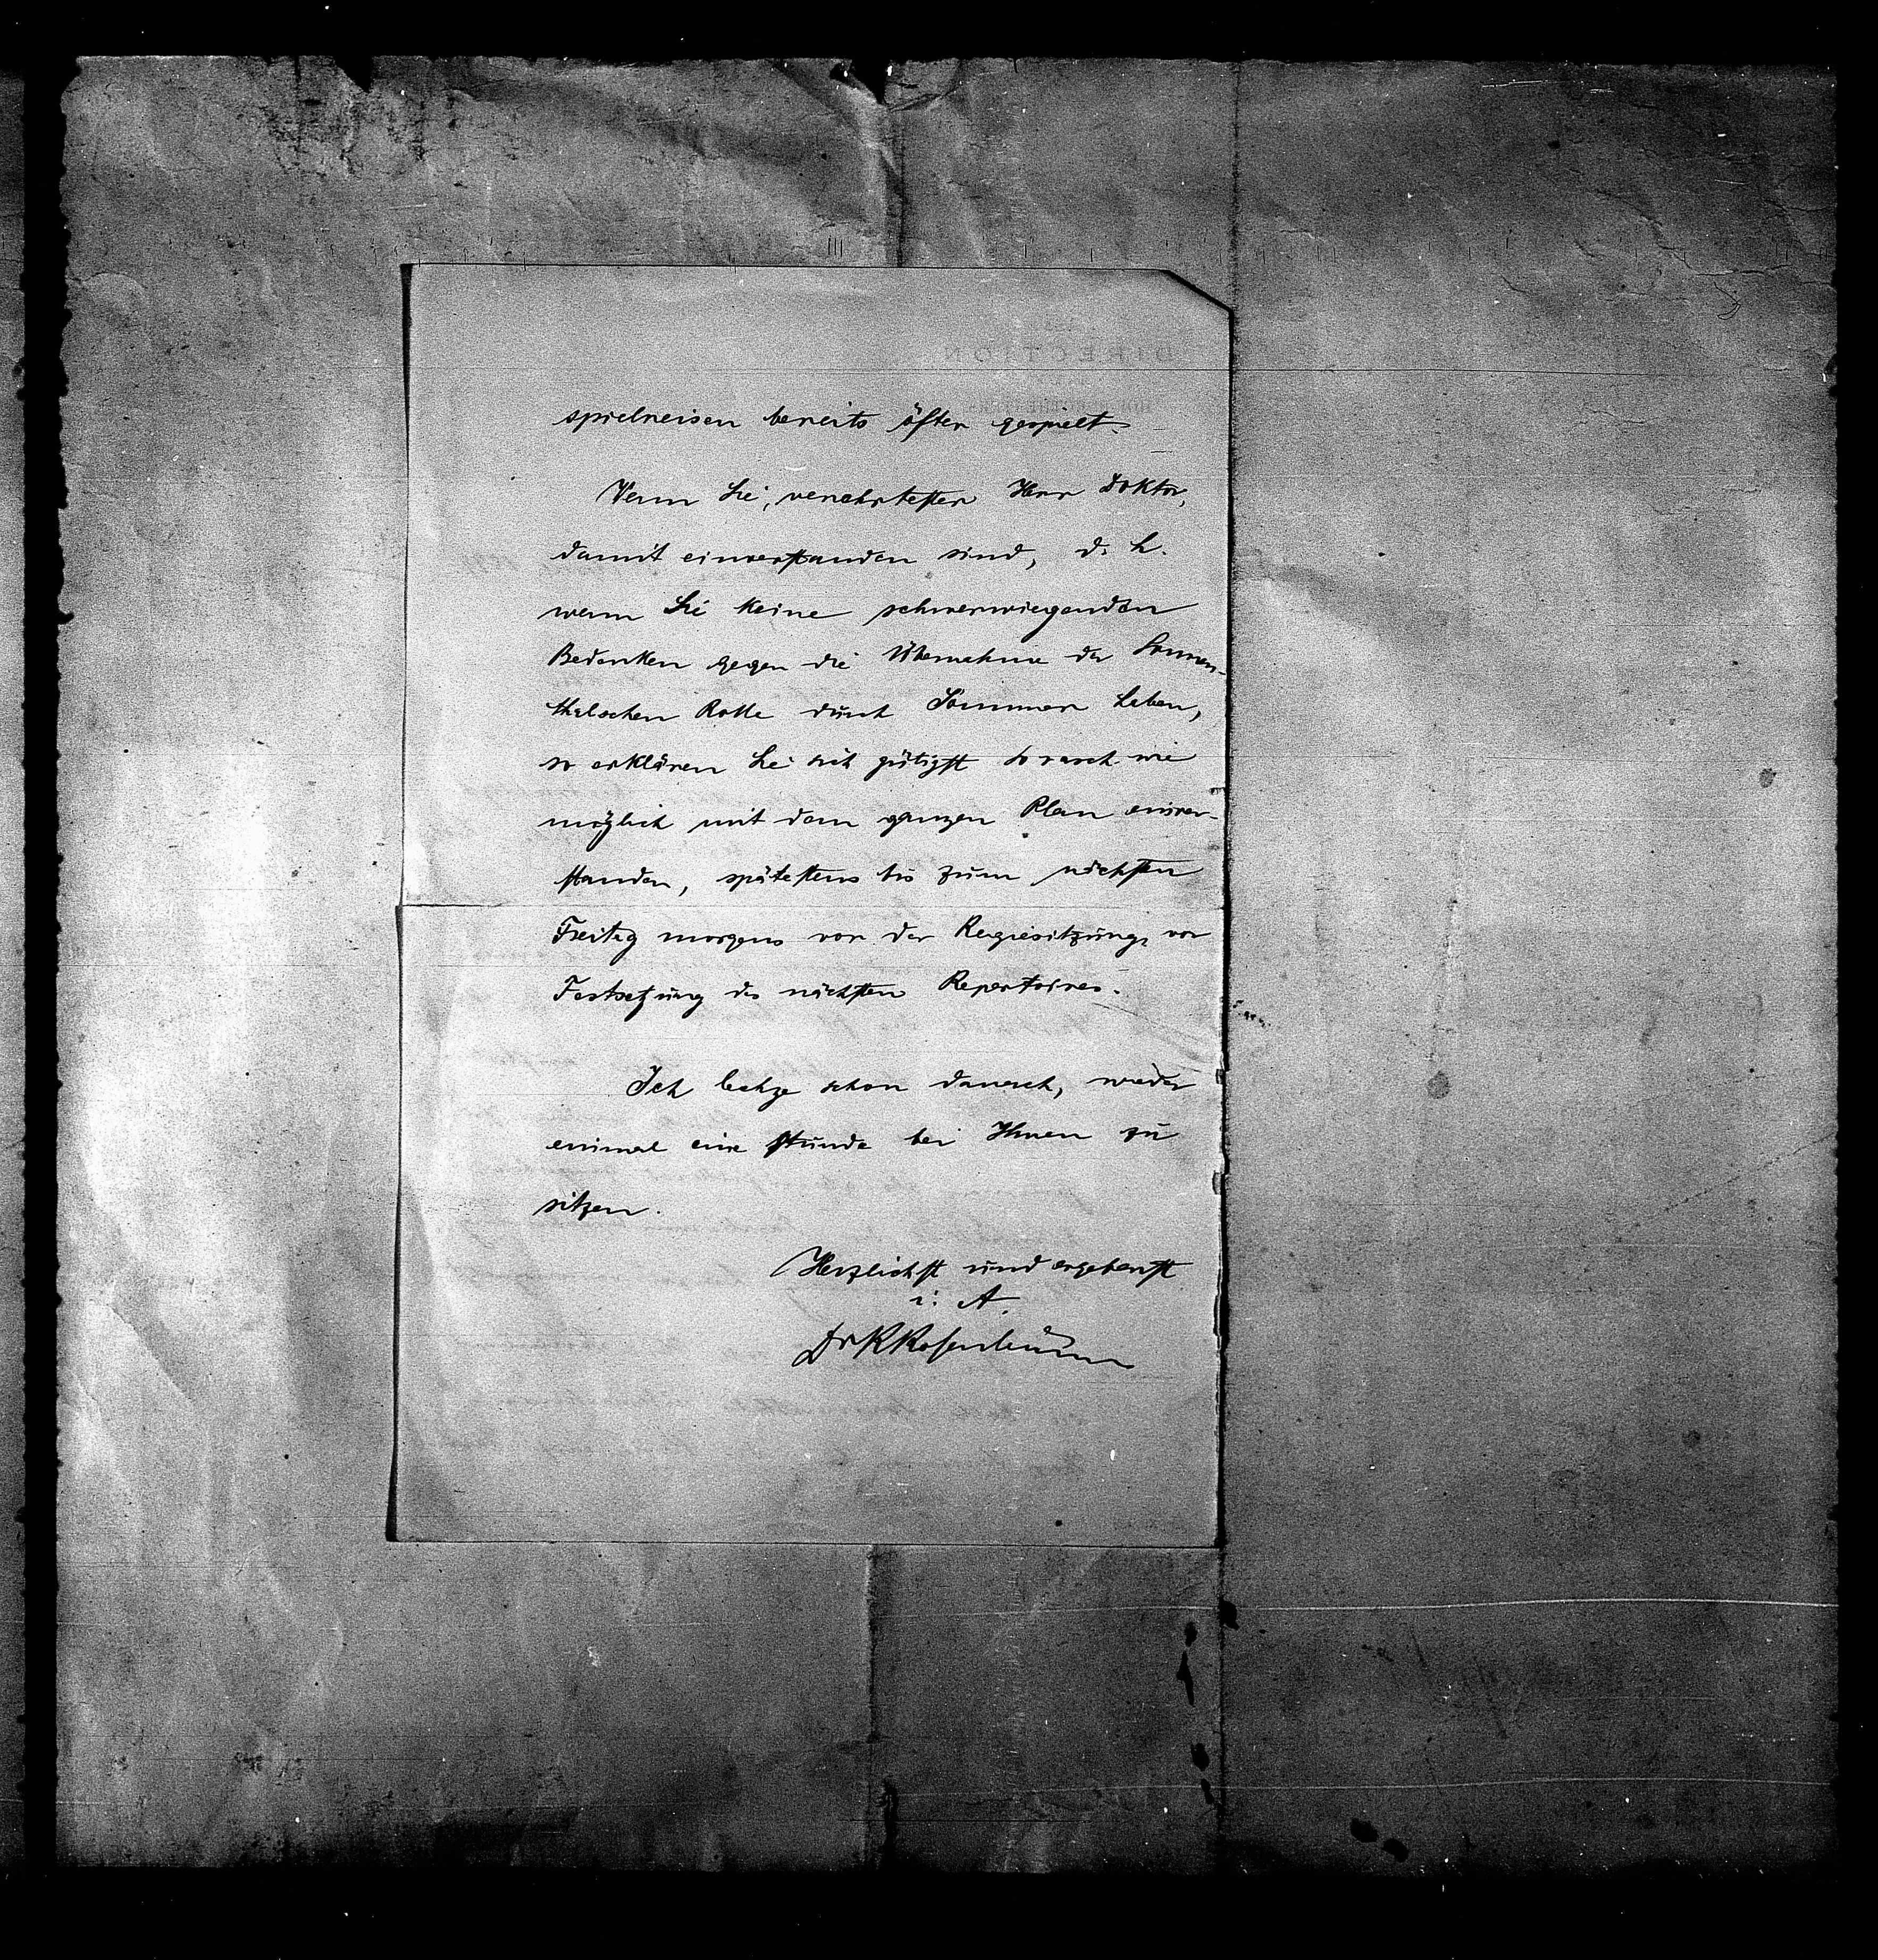 spielreisen bereits öfter gespielt.
Wenn Sie, verehrtester Herr Doktor,
damit einverstanden sind, d. h.
wenn Sie keine schwerwiegenden
Bedenken gegen die Übernahme der Sonnen-
thalschen Rolle durch Sommer haben,
so erklären Sie sich gütigst so rasch wie
möglich mit dem ganzen Plan einver-
standen, spätestens bis zum nächsten
Freitag morgens vor der Regiesitzung, vor
Festsetzung des nächsten Repertoires.
Ich lechze schon danach, wieder
einmal eine Stunde bei Ihnen zu
sitzen.
Herzlichst und ergebenst
i: A.
Dr R Rosenbaum
DIRECTION